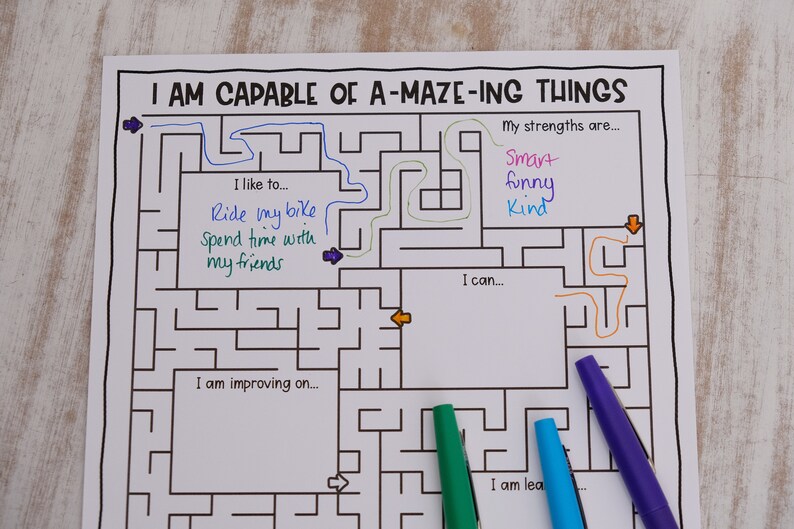 I AM CAPABLE OF A-MAZE-ING THINGS
My strengths are...
Smart
funny
Kind
I like to...
Ride my bike
Spend time with
my friends
I can...
I am improving on...
I am